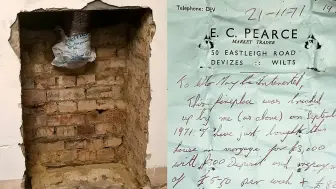 Telephone: Dev
21-11-71
E. C. PEARCE
MARKET TRADER
50 EASTLEIGH ROAD
DEVIZES :: WILTS
To Who May be Interested,
This fireplace was bricked
up by me (as above) on
1971. I have just bought the
house on mortgage for £3,000
with £700 Deposit and
of £5.50 per week +